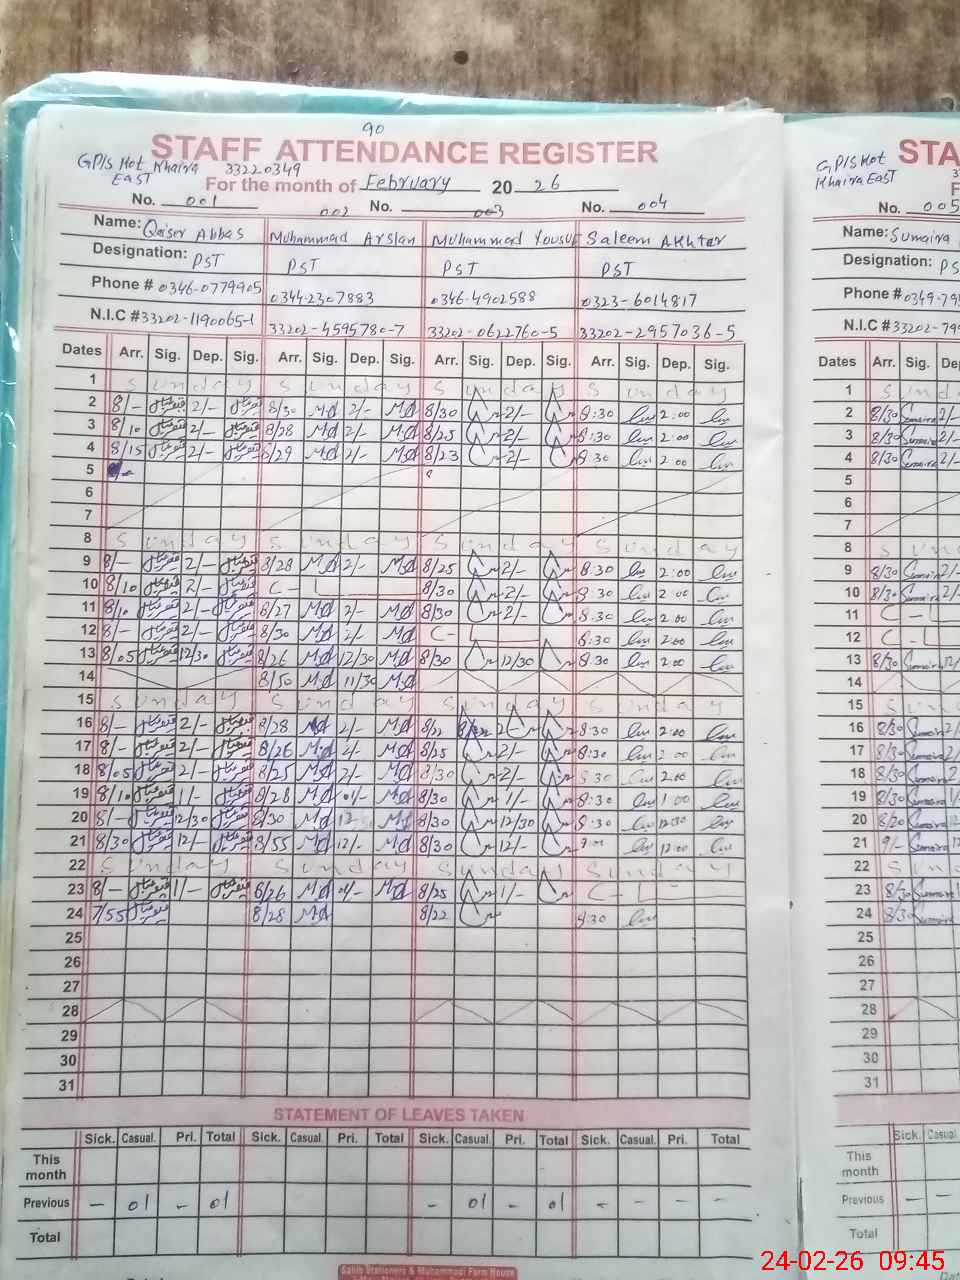 90
STAFF ATTENDANCE REGISTER
GP/S Kot Khaira 33220349
EAST
For the month of February 20 26
No. 001 002 No. 003 No. 004
Name: Qaiser Abbas Muhammad Arslan Muhammad Yousuf Saleem Akhtar
Designation: PST PST PST PST
Phone # 0346-0779905 0344-2307883 0346-4902588 0323-6014817
N.I.C #33202-1190065-1 33202-4595780-7 33202-0622760-5 33202-2957036-5
Dates Arr. Sig. Dep. Sig. Arr. Sig. Dep. Sig. Arr. Sig. Dep. Sig. Arr. Sig. Dep. Sig.
1 Sunday Sunday Sunday Sunday
2 8/- 2/- 8/30 2/- 8/30 2/- 8:30 2:00
3 8/10 2/- 8/28 2/- 8/25 2/- 8:30 2:00
4 8/15 2/- 8/29 2/- 8/23 2/- 8:30 2:00
5
6
7
8 Sunday Sunday Sunday Sunday
9 8/- 2/- 8/28 2/- 8/25 2/- 8:30 2:00
10 8/10 2/- C - L 8/30 2/- 8:30 2:00
11 8/10 2/- 8/27 2/- 8/30 2/- 8:30 2:00
12 8/- 2/- 8/30 2/- C - L 8:30 2:00
13 8/05 12/30 8/26 12/30 8/30 12/30 8:30 2:00
14 8/50 11/30
15 Sunday Sunday Sunday Sunday
16 8/- 2/- 8/28 2/- 8/22 2 8:30 2:00
17 8/- 2/- 8/26 2/- 8/25 2/- 8:30 2:00
18 8/05 2/- 8/25 2/- 8/30 2/- 8:30 2:00
19 8/10 1/- 8/28 01/- 8/30 1/- 8:30 1:00
20 8/- 12/30 8/30 12 8/30 12/30 8:30 12:30
21 8/30 12/- 8/55 12/- 8/30 12/- 9:00 12:00
22 Sunday Sunday Sunday Sunday
23 8/- 1/- 8/26 8/25 1/- C - L
24 7/55 8/28 8/22 8:30
25
26
27
28
29
30
31
STATEMENT OF LEAVES TAKEN
Sick. Casual. Pri. Total Sick. Casual. Pri. Total Sick. Casual. Pri. Total Sick. Casual. Pri. Total
This month
Previous - 01 - 01 - 01 - 01 - - - -
Total
Sahib Stationers & Muhammadi Farm House
GP/S Kot
Khaira EAST
STA
No. 005
Name: Sumaira
Designation: PS
Phone # 0349-795
N.I.C #33202-799
Dates Arr. Sig. De
1 Sund
2 8/30 Sumaira 2/-
3 8/30 Sumaira 2/-
4 8/30 Sumaira 2/-
5
6
7
8 Sund
9 8/30 Sumaira 2/-
10 8/30 Sumaira 2/-
11 C - L
12 C - L
13 8/30 Sumaira 12/
14
15
16 8/30 Sumaira 2/
17 8/30 Sumaira 2/
18 8/30 Sumaira 2/
19 8/30 Sumaira 1/
20 8/20 Sumaira 12
21 9/- Sumaira 12
22
23 8/30 Sumaira
24 8/30 Sumaira
25
26
27
28
29
30
31
Sick. Casual
This month
Previous - -
Total
24-02-26 09:45